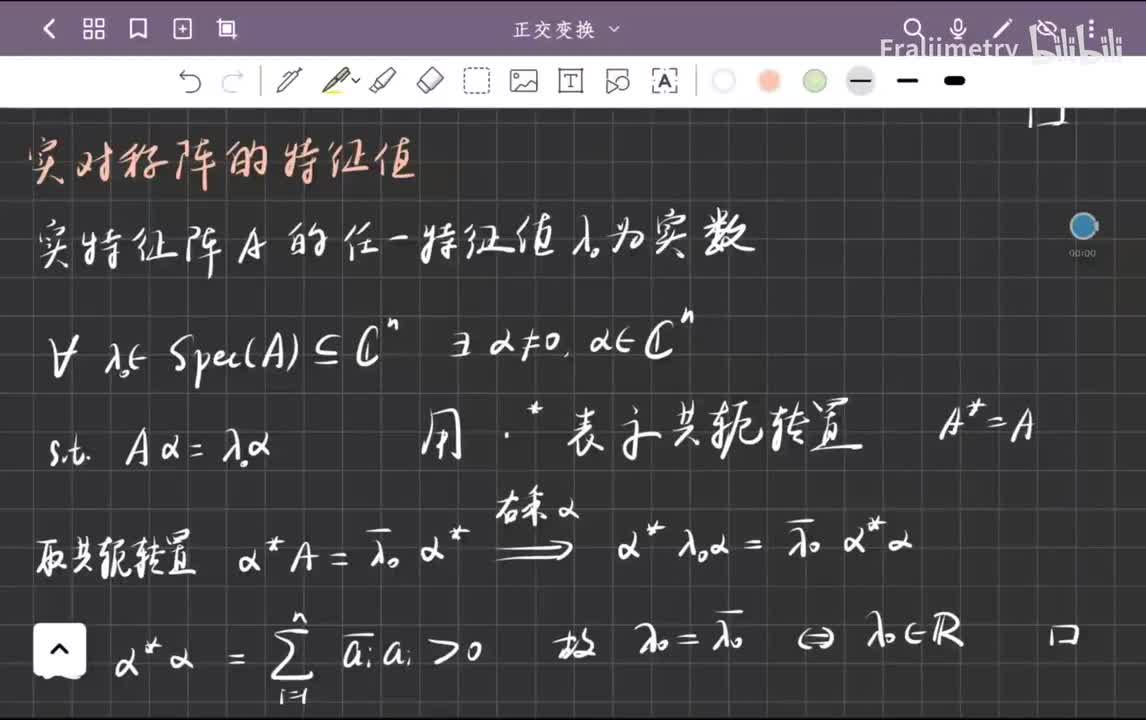 正交变换
Fraliimetry bilibili
实对称阵的特征值
00:00
实特征阵 A 的任一特征值 λ₀ 为实数
∀ λ₀∈ Spec(A) ⊆ ℂⁿ ∃ α≠0, α∈ ℂⁿ
s.t. Aα = λ₀α 用 ·* 表示共轭转置 A* = A
取共轭转置 α*A = λ̄₀ α* 右乘 α ⟹ α* λ₀α = λ̄₀ α*α
α*α = ∑ᵢ₌₁ⁿ āᵢ aᵢ > 0 故 λ₀ = λ̄₀ ⇔ λ₀∈ℝ □